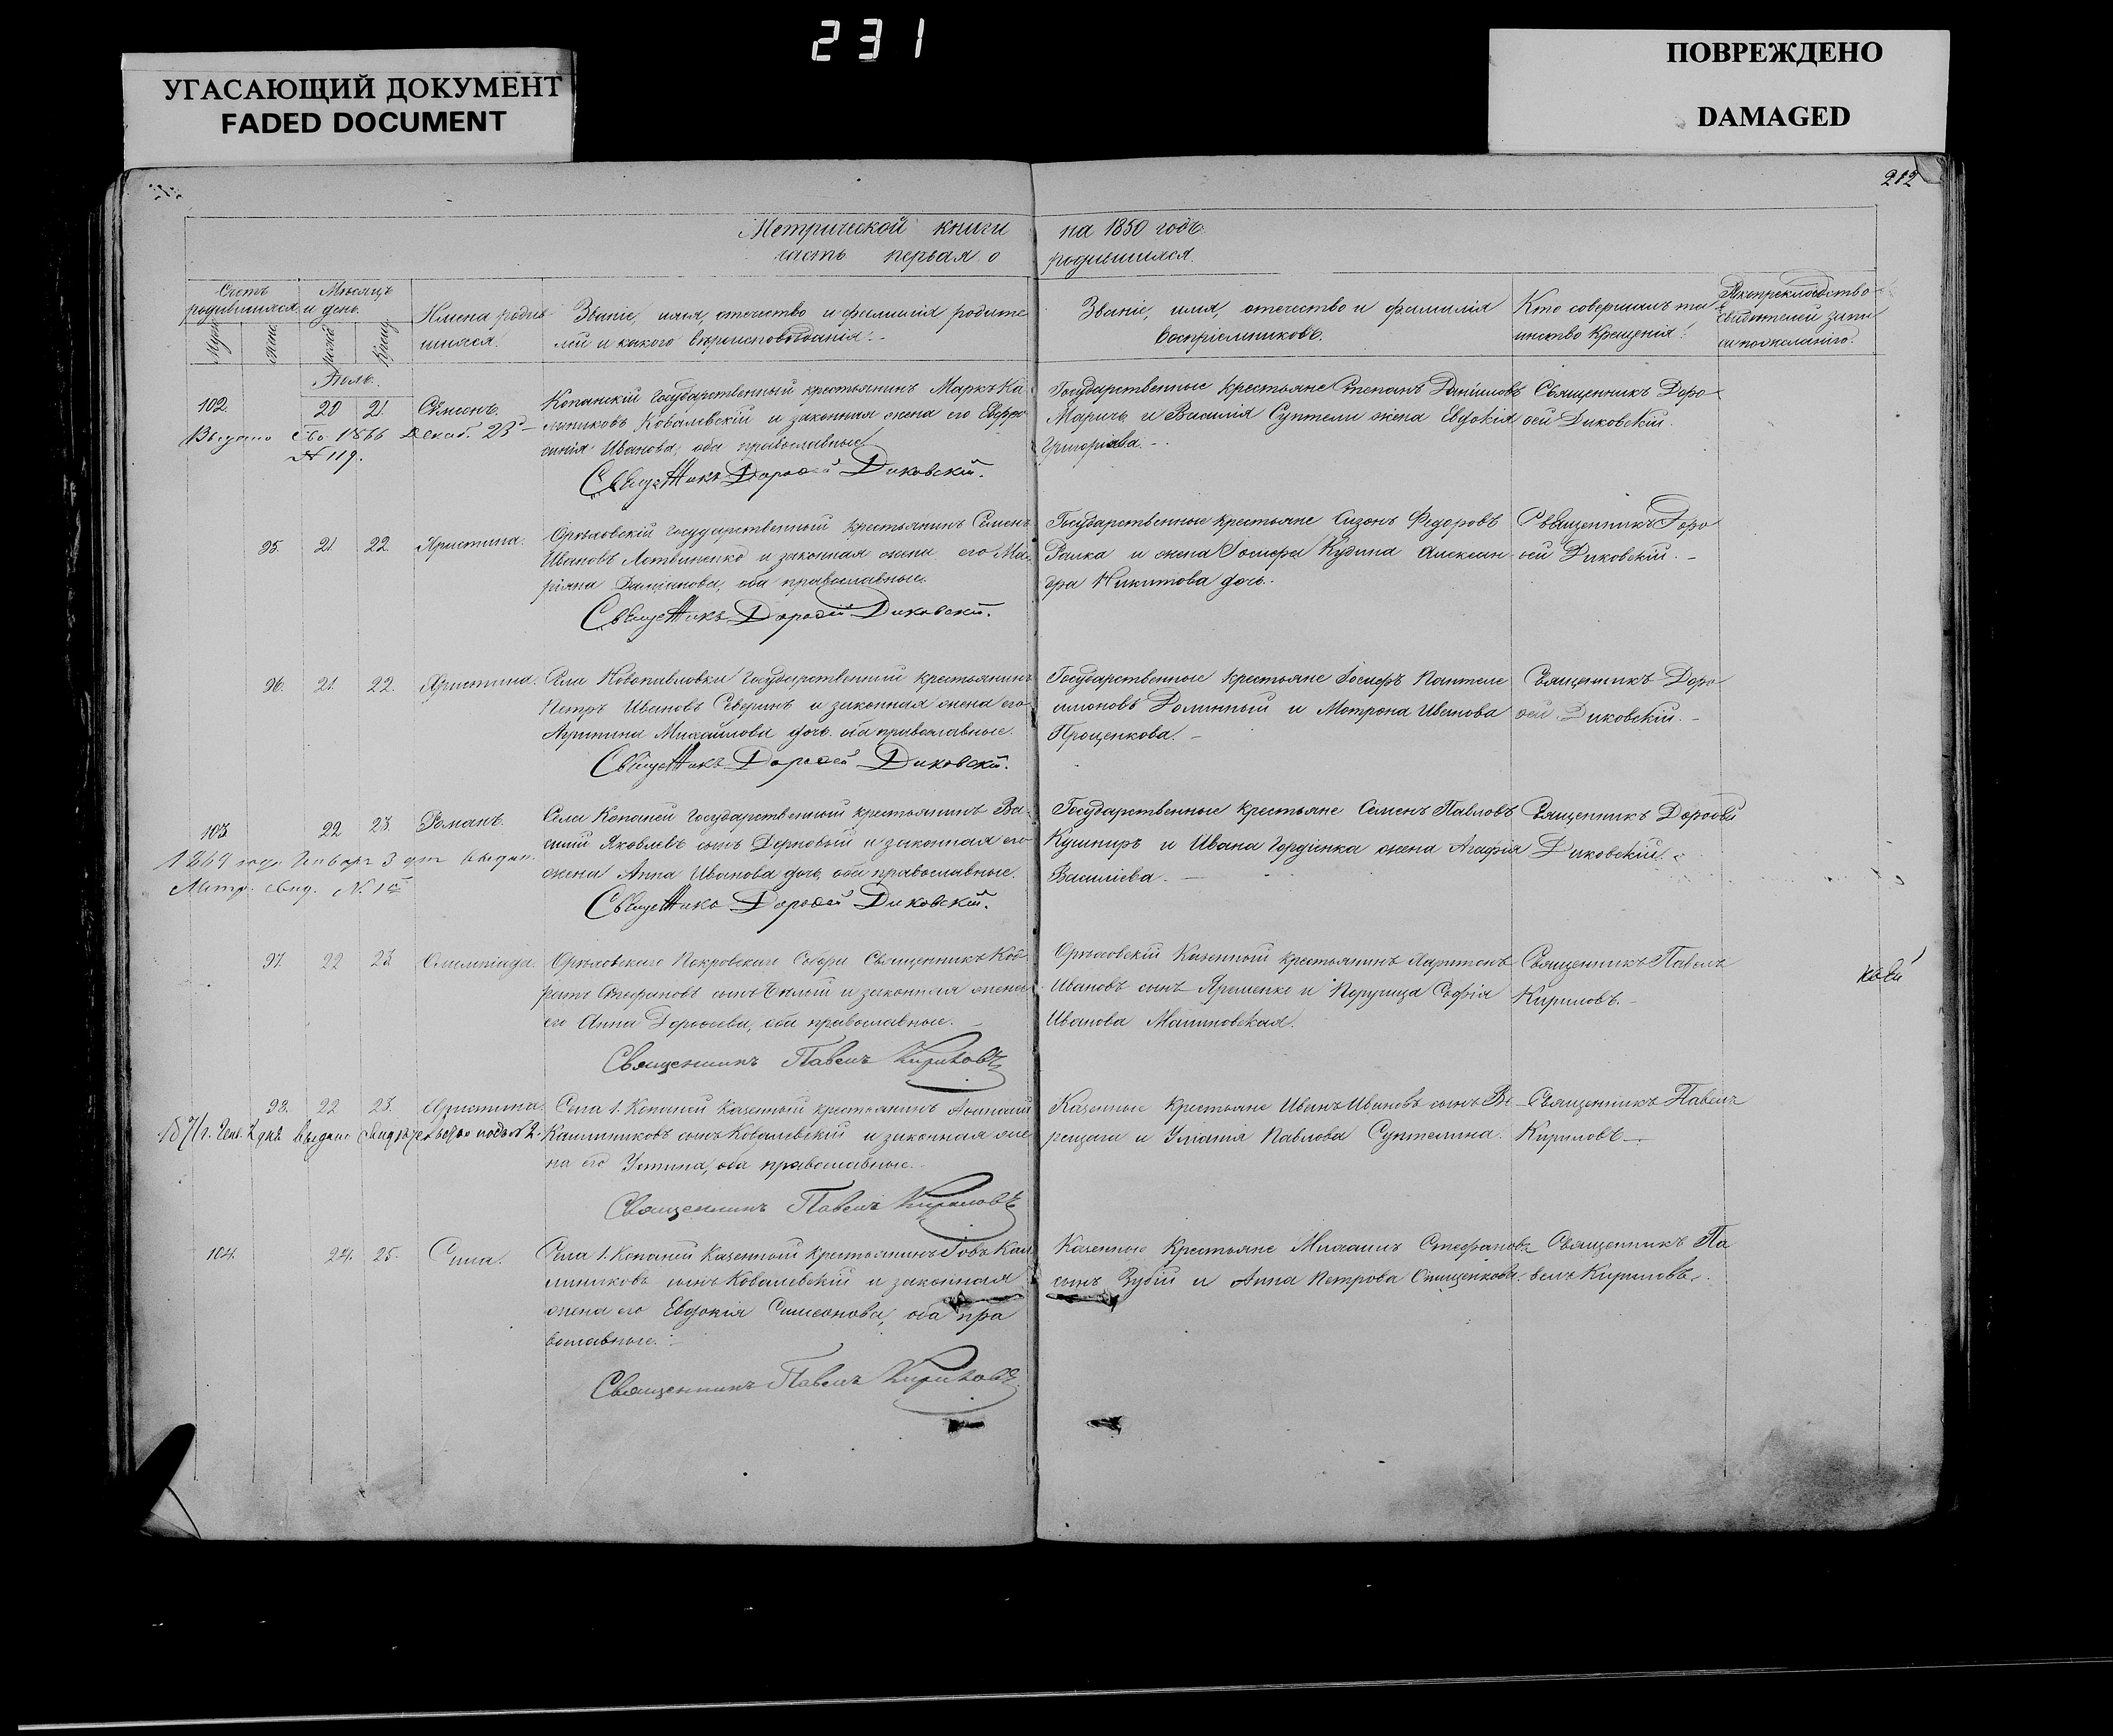 231
УГАСАЮЩИЙ ДОКУМЕНТ
FADED DOCUMENT
ПОВРЕЖДЕНО
DAMAGED
212
Метрической книги на 1850 годъ.
часть первая о родившихся.
Счетъ родившихся
Мѣсяцъ и день
Имена родив
шихся.
Званіе, имя, отечество и фамилія родите
лей и какого вѣроисповѣданія.
Званіе, имя, отечество и фамилія
воспріемниковъ.
Кто совершалъ та
инство крещенія.
свидѣтелей запи
си по желанію.
102. 20 21. Сѵмеонъ.
Выдано св. 1866 Декаб. 23
№ 119.
Копанскій государственный крестьянинъ Маркъ Ка
линиковъ Ковалевскій и законная жена его Евфро
синія Иванова, оба православные
Священникъ Дорофей Диковскій.
Государственные крестьяне Степанъ Даниловъ
и Василія Суптели жена Евдокія
Григорієва.
Священникъ Доро
фей Диковскій.
95. 21 22. Христина.
Орѣховскій государственный крестьянинъ Семенъ
Ивановъ Литвиненко и законная жена его Ма
ріяна Даміанова, оба православные.
Священникъ Дорофей Диковскій.
Государственные крестьяне Сизонъ Федоровъ
и жена Іосифа Кузина Алексан
дра Никитова дочь.
Священникъ Доро
фей Диковскій.
96. 21. 22. Христина.
Села Новопавловки государственный крестьянинъ
Петръ Ивановъ Северинъ и законная жена его
Михайлова дочь, оба православные.
Священникъ Дорофей Диковскій.
Государственные крестьяне Іосифъ Пантеле
имоновъ Долинный и Мотрона Иванова
Проценкова.
Священникъ Доро
фей Диковскій.
103 22 23. Романъ.
1869 года Января 3 дня выдан.
Метр. свид. № 1й
Села Копаней государственный крестьянинъ Ва
силій Яковлевъ сынъ Дерновый и законная его
жена Анна Иванова дочь, оба православные.
Священникъ Дорофей Диковскій.
Государственные крестьяне Семенъ Павловъ
Кушниръ и Ивана Гордіенка жена Агафія
Василіева.
Священникъ Дорофей
Диковскій.
97. 22 23 Олимпіада.
Орѣховскаго Покровскаго Собора Священникъ Код
ратъ Стефановъ сынъ Бѣлый и законная жена
его Анна Дорофеева, оба православные.
Священникъ Павелъ Кириловъ
Орѣховскій казенный крестьянинъ Харитонъ
Ивановъ сынъ Яременко и София
Иванова Малиновская.
Священникъ Павелъ
Кириловъ.
98. 22 23. Христина.
1871 г. Генв. 2 дня выдано свидѣтельство подъ № 2.
Села 1. Копаней казенный крестьянинъ Афанасій
Калиниковъ сынъ Ковалевскій и законная же
на его Устина, оба православные.
Священникъ Павелъ Кириловъ
Казенные крестьяне Иванъ Ивановъ сынъ Ве
рещага и Уліанія Павлова Суптелина.
Священникъ Павелъ
Кириловъ.
104. 24. 25. Сила.
Села 1. Копаней казенный крестьянинъ Іовъ Кал
линиковъ сынъ Ковалевскій и законная
жена его Евдокія Симеонова, оба пра
вославные.
Священникъ Павелъ Кириловъ
Казенные крестьяне Михаилъ Стефановъ
сынъ Зубій и Анна Петрова Онищенкова.
Священникъ Па
велъ Кириловъ.